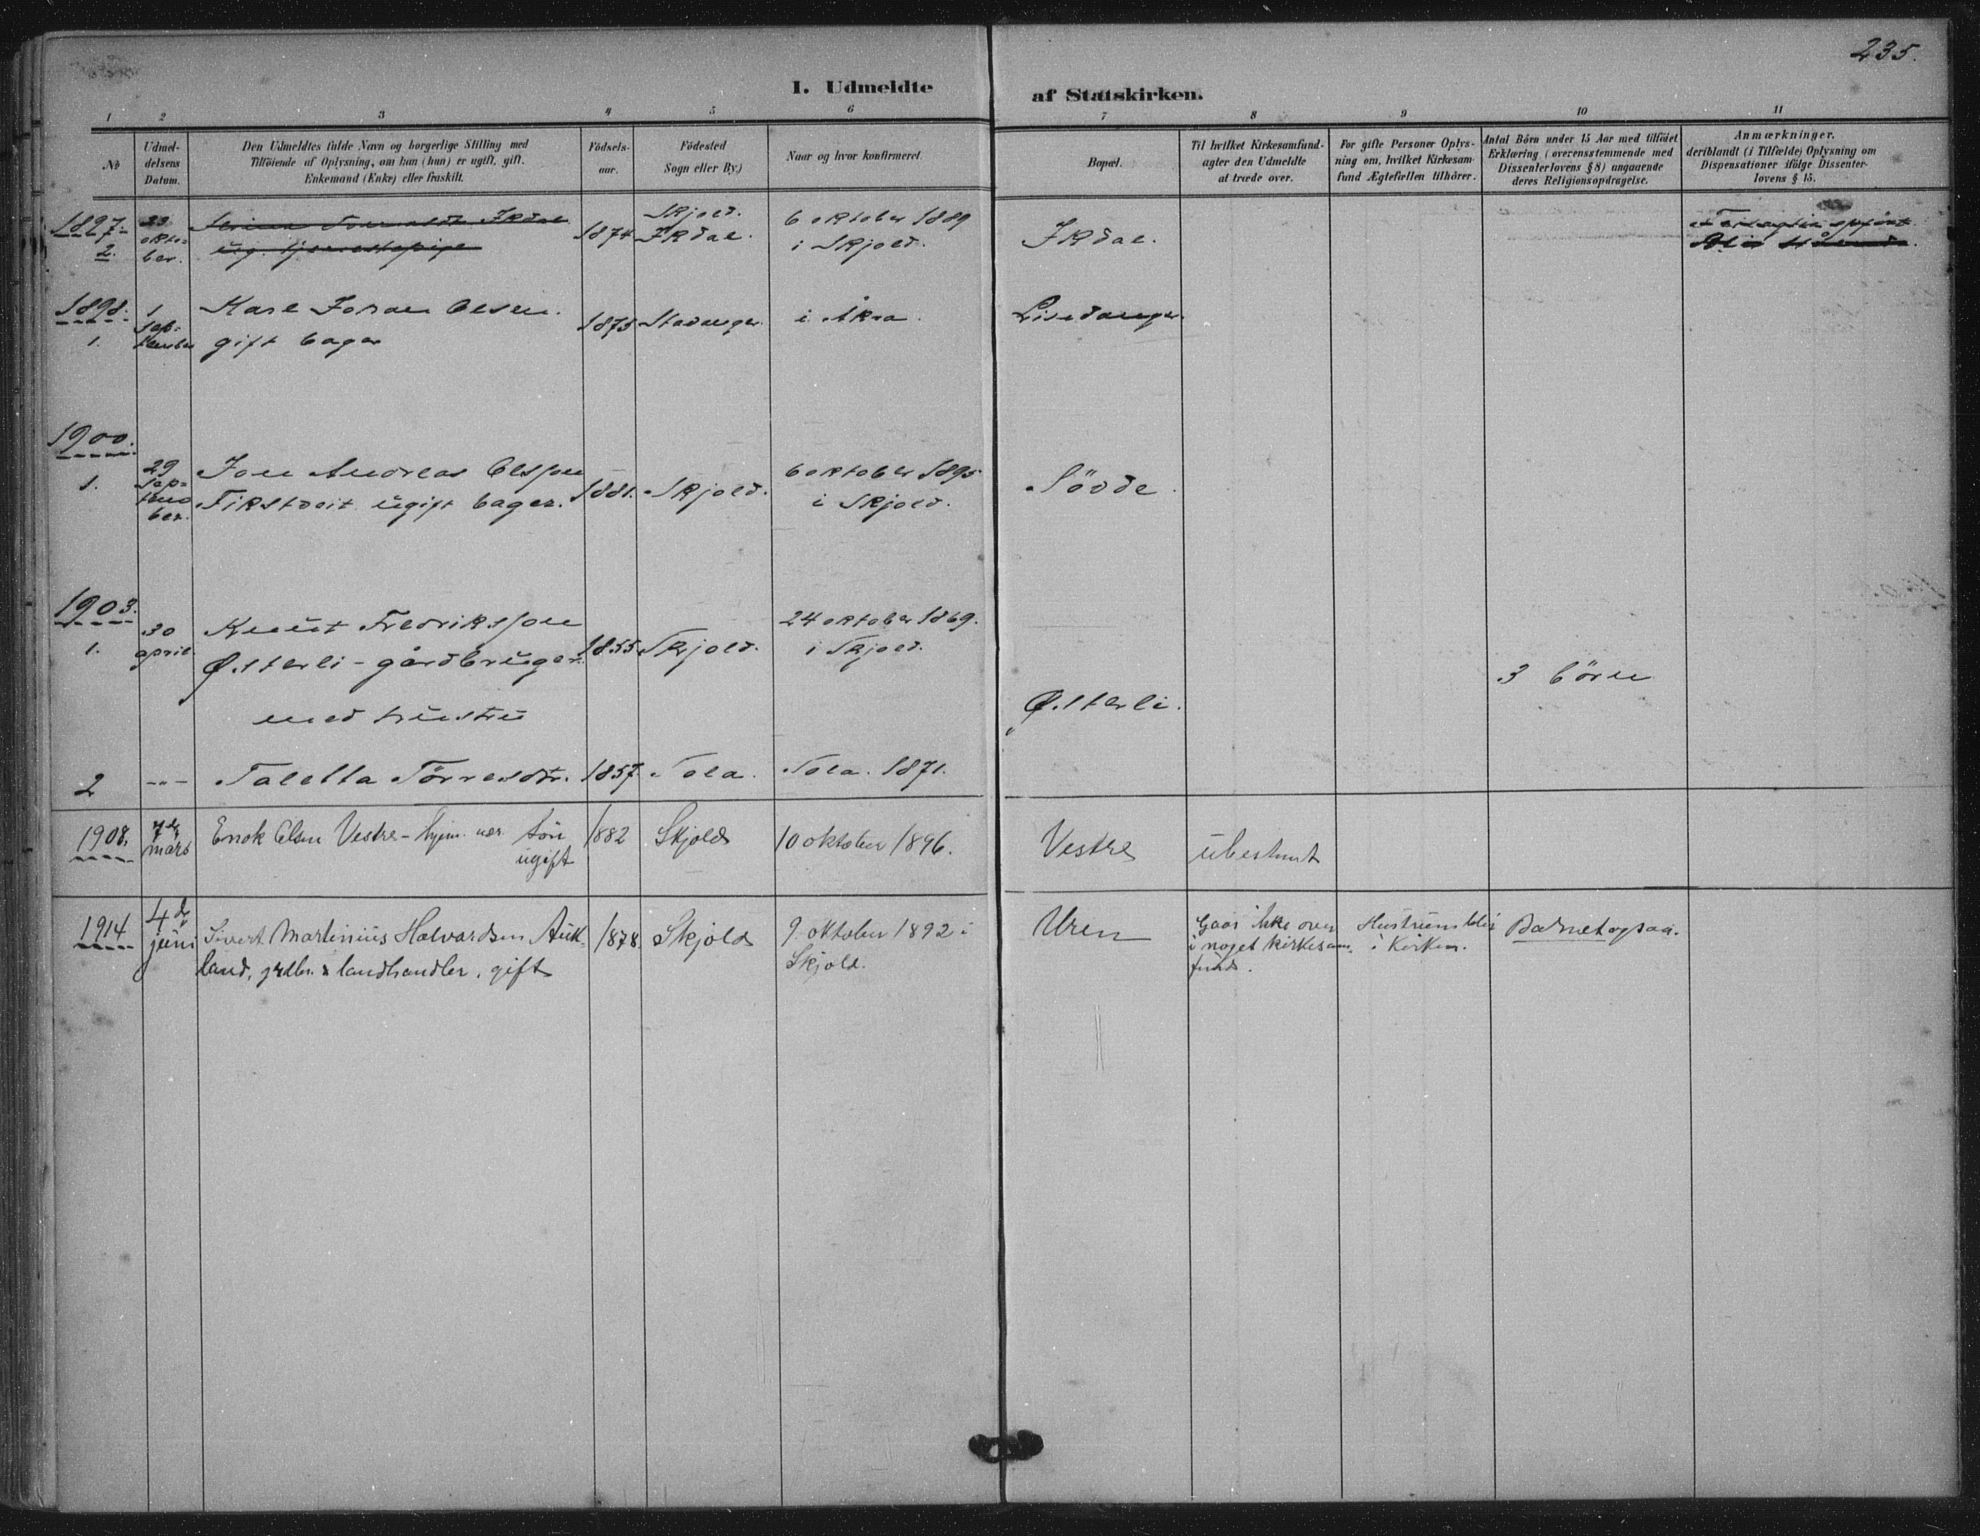 235.
I. Udmeldte af Statskirken.
1 2 3 4 5 6 7 8 9 10 11
No
Udmel-
delsens
Datum.
Den Udmeldtes fulde Navn og borgerlige Stilling med
Tilföiende af Oplysning, om han (hun) er ugift, gift,
Enkemand (Enke) eller fraskilt.
Födsels-
aar.
Födested
Sogn eller By.)
Naar og hvor konfirmeret.
Bopæl.
Til hvilket Kirkesamfund
agter den Udmeldte
at træde over.
For gifte Personer Oplys-
ning om, hvilket Kirkesam-
fund Ægtefællen tilhörer.
Antal Börn under 15 Aar med tilföiet
Erklæring (overensstemmende med
Dissenterlovens § 8) angaaende
deres Religionsopdragelse.
Anmærkninger,
deriblandt (i Tilfælde) Oplysning om
Dispensationer ifölge Dissenter-
lovens § 15.
1897.
2.
23
okto-
ber.
Ikdal
ug. tjenestepige
1874
Skjold.
Ikdal.
6 oktober 1889
i Skjold.
Ikdal.
1898.
1.
1
Sep-
tember
Karl Johan Olsen.
gift bager
1875
Stavanger.
i Åkra.
1900.
1.
29
Sep-
tem
ber.
Jon Andreas Olsson
Fikstveit ugift bager.
1881.
Skjold.
6 oktober 1895
i Skjold.
Sövde.
1903.
1.
30
april.
Knut Fredriksson
Østerli - gårdbruger.
med hustru
1855
Skjold.
24 oktober 1869.
i Skjold.
Østerli.
3 börn
2
---
Taletta Törresdtr.
1857
Sola.
Sola. 1871.
1908.
7de
mars
Enok Olsen Vestre - hjem. vær. sön
ugift
1882
Skjold
10 oktober 1896.
Vestre
ubestemt
1914
4de
juni
Sivert Martinius Halvardsen Auk-
land, grdbr. & landhandler, gift
1878
Skjold
9. oktober 1892 i
Skjold.
Uren
Gaar ikke over
i noget kirkesam-
fund.
Hustruen blir
i Kirken.
Barnet ogsaa.